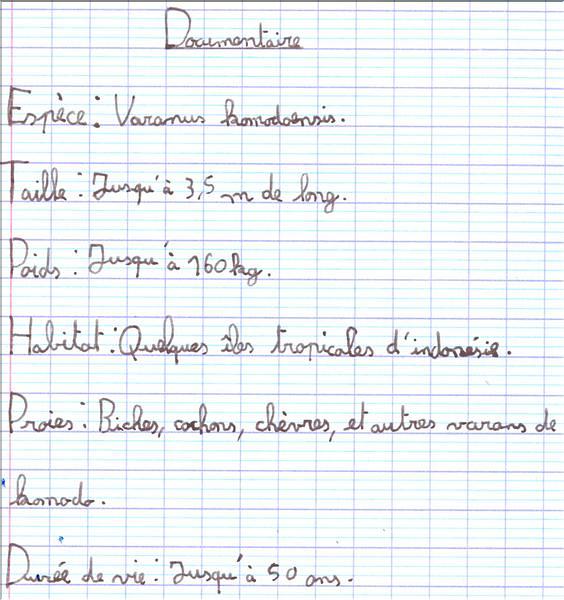 Documentaire
Espèce : Varanus komodoensis.
Taille : Jusqu'à 3,5 m de long.
Poids : Jusqu'à 160 kg.
Habitat : Quelques îles tropicales d'indonésie.
Proies : Biches, cochons, chèvres, et autres varans de
komodo.
Durée de vie : Jusqu'à 50 ans.